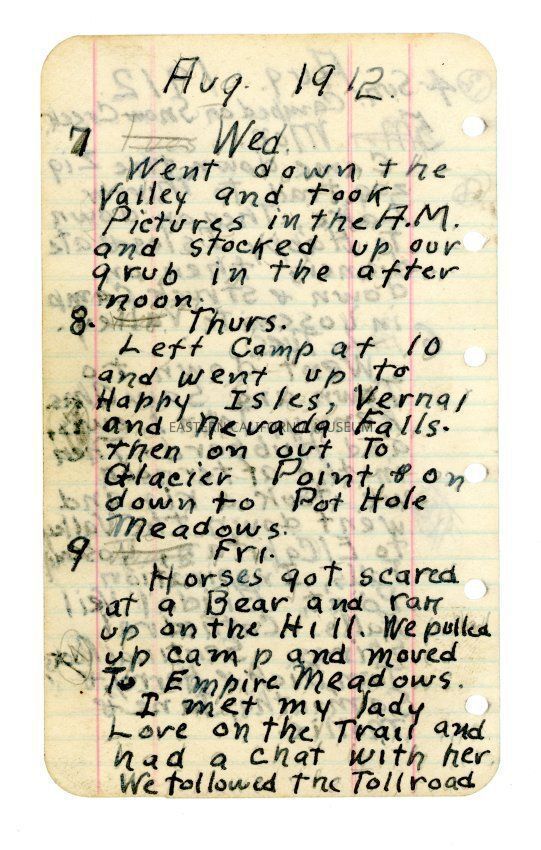 Aug. 1912.
7 Wed.
Went down the
Valley and took
Pictures in the A.M.
and stocked up our
grub in the after
noon.
8. Thurs.
Left Camp at 10
and went up to
Happy Isles, Vernal
and Nevada Falls.
then on out To
Glacier Point & on
down to Pot Hole
Meadows.
9 Fri.
Horses got scared
at a Bear and ran
up on the Hill. We pulled
up camp and moved
To Empire Meadows.
I met my lady
Love on the Trail and
had a chat with her.
We followed the Tollroad
EASTERN CALIFORNIA MUSEUM